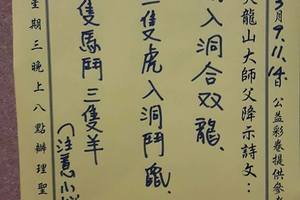 3月9.11.14日公益彩卷提供參考
天龍山大師父降示詩文：
入洞合双龍、
二隻虎入洞鬥鼠、
隻馬鬥三隻羊
(注意小
星期三晚上八點辦理聖